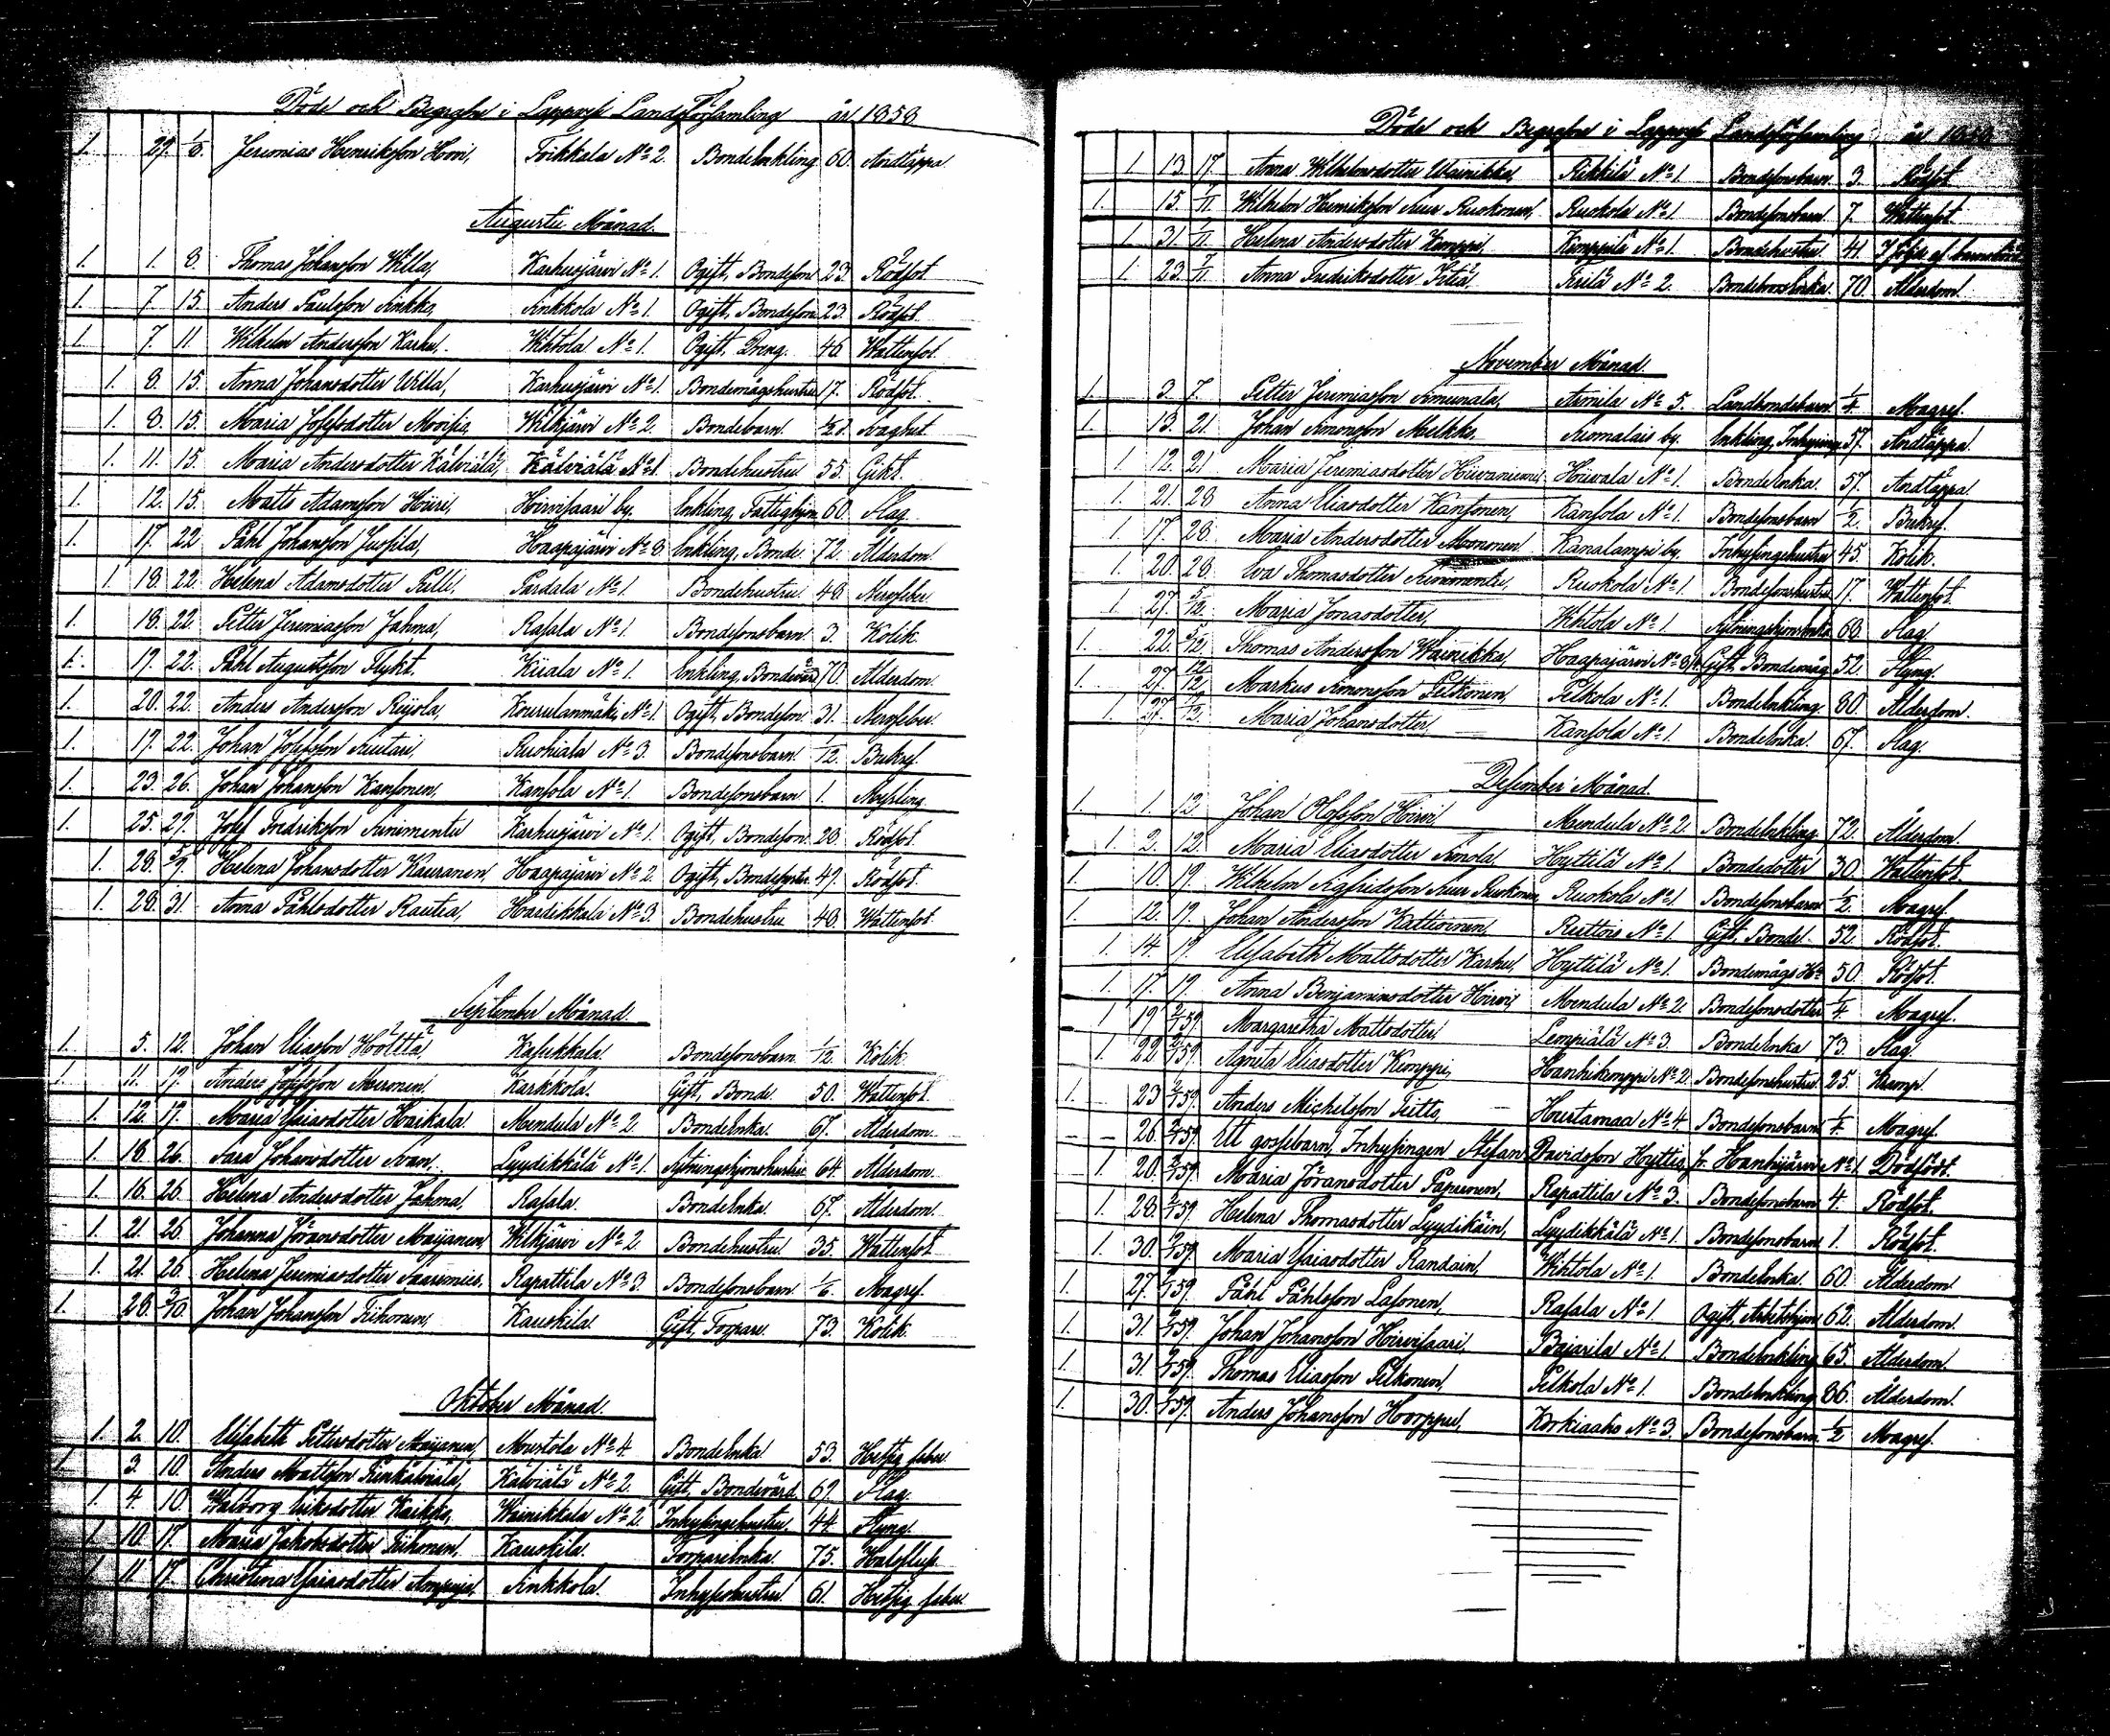 Döde och Begrafne i Lappvesi Landsförsamling år 1858
1. 29. 1/8. Jeremias Henriksson Hovi, Toikkala No 2. Bondeenkling 60. Andtäppa
Augusti Månad.
1. 1. 8. Thomas Johansson Willa, Karhusjärvi No 1. Ogift, Bondeson 23. Rödsot
1. 7. 15. Anders Paulsson Sinkko, Sinkkola No 1. Ogift, Bondeson 23. Rödsot
1. 7. 11. Wilhelm Andersson Karhu, Wihtola No 1. Ogift, Dreng. 46. Wattensot.
1. 8. 15. Anna Johansdotter Willa, Karhusjärvi No 1. Bondemågshustru 17. Rödsot.
1. 8. 15. Maria Josefsdotter Moisio, Wilkjärvi No 2. Bondebarn. Svaghet.
1. 11. 15. Maria Andersdotter Kälviälä, Kälviälä No 1. Bondehustru 55. Gikt.
1. 12. 15. Matts Adamsson Hiiri, Hirvisaari by. Enkling, Fattighjon 60. Slag
1. 17. 22. Påhl Johansson Jusila, Haapajärvi No 8. Enkling, Bonde. 72. Ålderdom
1. 18. 22. Helena Adamsdotter Pilli, Pardala No 1. Bondehustru 48. Nervfeber.
1. 18. 22. Petter Jeremiasson Jahma, Rasala No 1. Bondesonsbarn 3. Kolik.
1. 19. 22. Påhl Augustsson Flykt. Kiiala No 1. Enkling, Bondevärd 70. Ålderdom.
1. 20. 22. Anders Andersson Reijola, Kourulanmäki, No 1. Ogift, Bondeson 31. Nervfeber
1. 17. 22. Johan Josefsson Suutari, Ruohiala No 3. Bondesonsbarn. 1/12. Bukref.
1. 23. 26. Johan Johansson Kansonen, Kansola No 1. Bondesonsbarn 1. Messling.
1. 25. 29. Josef Fredriksson Surumentu Karhusjärvi No 1. Ogift, Bondeson. 28. Rödsot.
1. 28. 5/9. Helena Johansdotter Kauranen, Haapajärvi No 2. Ogift, Bondesyster. 49. Rödsot.
1. 28. 31. Anna Påhlsdotter Rautia, Hardikkala No 3. Bondehustru 48. Wattensot.
September Månad
1. 5. 12. Johan Eliasson Höölttä, Kasukkala. Bondesonsbarn. 1/12. Kolik
1. 11. 19. Anders Josefsson Muronen, Karkkola. Gift, Bonde. 50. Wattensot.
1. 12. 19. Maria Esaiasdotter Haikala Mendula No 2. Bondeenka. 67. Ålderdom.
1. 18. 26. Sara Johansdotter Svan. Lyydikkälä No 1. Sytningshjonshustru 64. Ålderdom.
1. 16. 26. Helena Andersdotter Jahma, Rasala. Bondeenka. 67. Ålderdom.
1. 21. 26. Johanna Göransdotter Maijanen, Wilkjärvi No 2. Bondehustru. 35. Wattensot
1. 21. 26. Helena Jeremiasdotter Saaremies, Rapattila No 3. Bondesonsbarn. 1/6. Magref.
1. 26. 3/10. Johan Johansson Tiihonen, Kauskila. Gift, Torpare. 73. Kolik.
Oktober Månad.
1. 2. 10. Elisabeth Pettersdotter Maijanen, Mustola No 4. Bondeenka 53. Hetsig feber.
1. 3. 10. Anders Mattsson Kälviäinen, Kälviälä No 2. Gift, Bondevärd 69. Slag.
1. 4. 10. Walborg Eriksdotter Kaikko, Wainikkala No 2. Inhysingehustru. 44. Styng.
1. 10. 17. Maria Jakobsdotter Tiihonen, Kauskila. Torpareenka. 75. Halsfluss
1. 11. 17. Christina Esaiasdotter Ampuja, Sinkkola. Inhyseshustru. 61. Hetsig feber
Döde och Begrafne i Lappvesi Landsförsamling år 1858
1. 13. 17. Anna Wilhelmsdotter Wainikka, Rikkilä No 1. Bondesonsbarn. 3. Rödsot
1. 15. 7/11. Wilhelm Henriksson Suur Ruokonen, Ruokola No 1. Bondesonsbarn. 7. Wattensot
1. 31. 7/11. Helena Andersdotter Kemppi, Kemppilä No 1. Bondehustru. 41. I följd af barnsbörd
1. 23. 7/11. Anna Fredriksdotter Kriiä, Kriilä No 2. Bondebrorsenka 70. Ålderdom.
November Månad.
1. 3. 7. Petter Jeremiasson Simurala, Armila No 5. Landbondebarn. 1/4. Magref.
1. 13. 21. Johan Simonsson Mielkko, Simolais by. Enkling, Inhysing 57. Andtäppa
1. 12. 21. Maria Jeremiasdotter Huvaniemi, Huvala No 1. Bondeenka. 57. Andtäppa
1. 21. 28. Anna Eliasdotter Kansonen, Kansola No 1. Bondesonsbarn 1/2. Bukref.
1. 17. 28. Maria Andersdotter Mononen Kanalampi by. Inhysingehustru 45. Kolik.
1. 20. 28. Eva Thomasdotter Surumentu, Ruokola No 1. Bondesonshustru 17. Wattensot.
1. 27. 5/12. Maria Jonasdotter, Wihtola No 1. Sytningshjonsenka 68. Slag
1. 22. 5/12. Thomas Andersson Wainikka, Haapajärvi No 8. Gift, Bondemåg. 52. Styng.
1. 27. 12/12. Markus Simonsson Pelkonen, Pelkola No 1. Bondeenkling. 80. Ålderdom.
1. 27. 12/12. Maria Johansdotter, Kansola No 1. Bondeenka. 67. Slag.
December Månad
1. 1. 12. Johan Olofsson Hirvi, Mendula No 2. Bondeenkling 72. Ålderdom.
1. 2. 12. Maria Eliasdotter Simola, Hyttilä No 1. Bondedotter 30. Wattensot.
1. 10. 19. Wilhelm Sigfridsson Suur Ruokonen, Ruokola No 1. Bondesonsbarn 1/2. Magref.
1. 12. 19. Johan Andersson Kattivinen, Ruttois No 1. Gift, Bonde. 52. Rödsot.
1. 14. 19. Elisabeth Mattsdotter Karhu, Hyttilä No 1. Bondemågs H:u 50. Rödsot.
1. 17. 19. Anna Benjaminsdotter Hirvi, Mendula No 2. Bondesonsdotter 1/4. Magref.
1. 19. 2/1 59. Margaretha Mattsdotter, Lempiälä No 3. Bondeenka 73. Slag.
1. 22. 2/1 59. Agneta Eliasdotter Kemppi, Hanhikemppi No 2. Bondesonshustru 25. Kramp.
1. 23. 2/1 59. Anders Michelsson Teitto, Hurtamaa No 4. Bondesonsbarn 1/4. Magref.
— — 26. 2/1 59. Ett gossebarn, Inhysingen Stefan Davidsson Hyttiö, fr. Hanhijärvi No 1. Dödfödt.
1. 20. 2/1 59. Maria Göransdotter Papunen, Rapattila No 3. Bondesonsbarn 4. Rödsot.
1. 28. 2/1 59. Helena Thomasdotter Lyydikäin, Lyydikkälä No 1. Bondesonsbarn 1. Rödsot.
1. 30. 2/1 59. Maria Esaiasdotter Randain, Wihtola No 1. Bondeenka. 60. Ålderdom
1. 27. 2/1 59. Påhl Påhlsson Lasonen, Rasala No 1. Ogift, Arbetshjon 62. Ålderdom.
1. 31. 2/1 59. Johan Johansson Hirvisaari, Bajarila No 1. Bondeenkling 65. Ålderdom.
1. 31. 2/1 59. Thomas Eliasson Pelkonen, Pelkola No 1. Bondeenkling 86. Ålderdom.
1. 30. 2/1 59. Anders Johansson Hoorppu, Korkiaaho No 3. Bondesonsbarn 1/2. Magref.